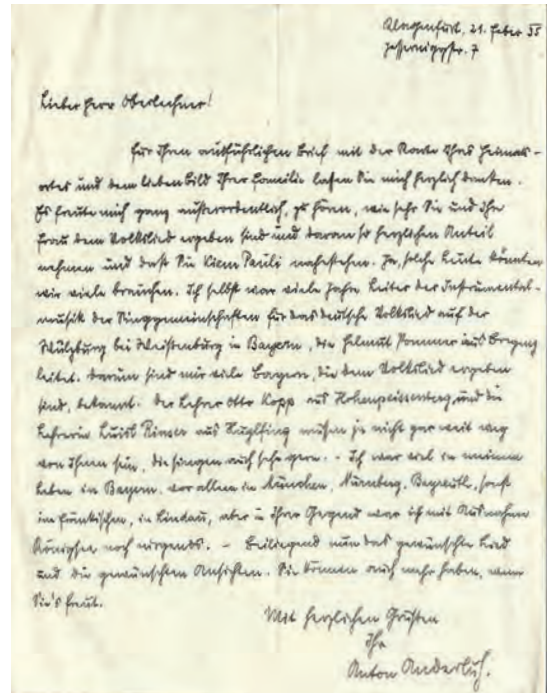 Klagenfurt, 21. Feber 35
Jesserniggstr. 7
Lieber Herr Oberlechner!
Für Ihren ausführlichen Brief mit der Karte Ihres Heimat-
ortes und dem lieben Bild Ihrer Familie lassen Sie mich herzlich danken.
Es freute mich ganz außerordentlich, zu hören, wie sehr Sie und Ihre
Frau dem Volkslied ergeben sind und daran so herzlichen Anteil
nehmen und daß Sie Kiem Pauli nahestehen. Ja, solche Leute könnten
wir viele brauchen. Ich selbst war viele Jahre Leiter der Instrumental-
musik der Singgemeinschaften für das deutsche Volkslied auf der
Wülzburg bei Weißenburg in Bayern, die Helmut Pommer aus Bregenz
leitet. Darum sind mir viele Bayern, die dem Volkslied ergeben
sind, bekannt. Der Lehrer Otto Kopp aus Hohenpeissenberg und die
Lehrerin Luise Rinser aus Huglfing müssen ja nicht gar weit weg
von Ihnen sein, die singen auch sehr gern. – Ich war viel in meinem
Leben in Bayern. Vor allem in München, Nürnberg, Bayreuth, sonst
im Fränkischen, in Lindau, aber in Ihrer Gegend war ich mit Ausnahme
Königssee noch nirgends. – Beiliegend nun das gewünschte Lied
und die gewünschten Ansichten. Sie können auch mehr haben, wenn
Sie's freut.
Mit herzlichen Grüßen
Ihr
Anton Anderluh.